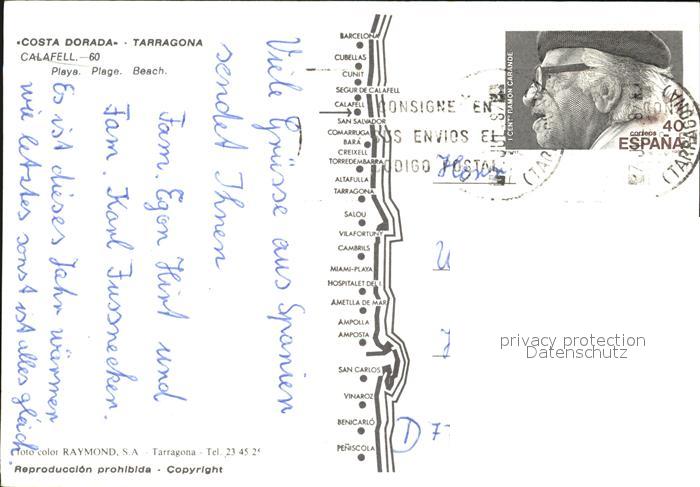 «COSTA DORADA» - TARRAGONA
CALAFELL.—60
Playa. Plage. Beach.
Viele Grüsse aus Spanien
sendet Ihnen
Fam. Egon Hirt und
Fam. Karl Fussnecken.
Es ist dieses Jahr wärmer
wie letztes sonst ist alles gleich.
Foto color RAYMOND, S.A. - Tarragona - Tel. 23 45 2
Reproducción prohibida - Copyright
BARCELONA
CUBELLAS
CUNIT
SEGUR DE CALAFELL
CALAFELL
SAN SALVADOR
COMARRUGA
BARÁ
CREIXELL
TORREDEMBARRA
ALTAFULLA
TARRAGONA
SALOU
VILAFORTUNY
CAMBRILS
MIAMI-PLAYA
HOSPITALET DEL I.
AMETLLA DE MAR
AMPOLLA
AMPOSTA
SAN CARLOS
VINAROZ
BENICARLÓ
PEÑÍSCOLA
CONSIGNE EN
SUS ENVIOS EL
CODIGO POSTAL
I CENT. RAMON CARANDE
40
correos
ESPAÑA
(TARRAGONA)
D 7
privacy protection
Datenschutz